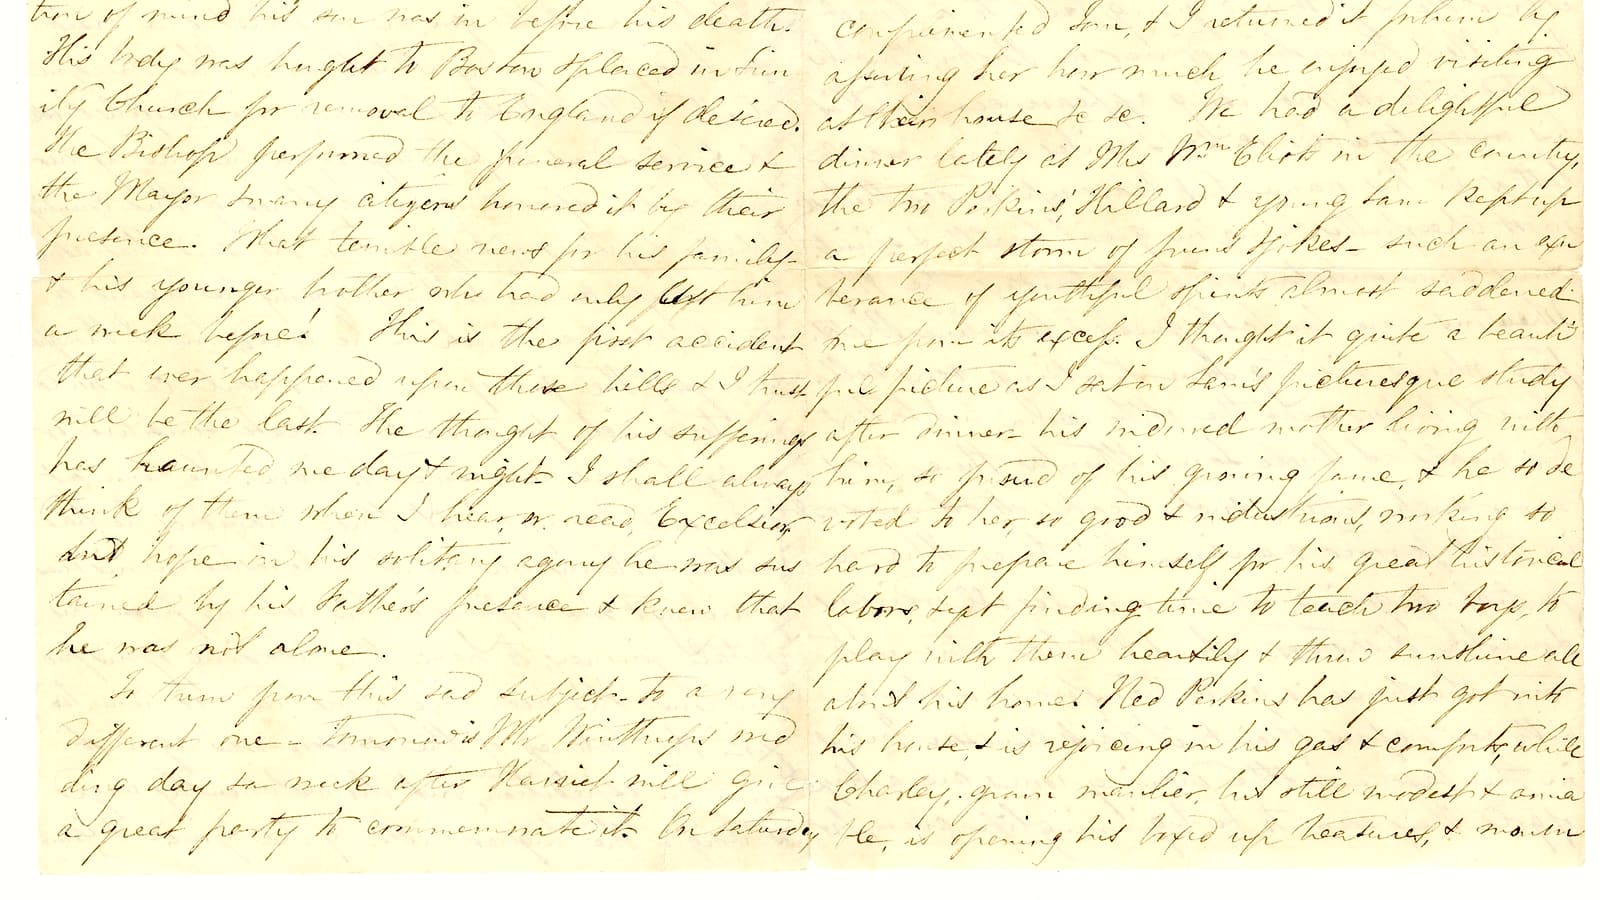 tion of mind his son was in before his death.
His body was brought to Boston & placed in Trin
ity Church for removal to England if desired.
The Bishop performed the funeral service &
the Mayor & many citizens honored it by their
presence. What terrible news for his family—
& his younger brother who had only left him
a week before! This is the first accident
that ever happened upon those hills & I trust
will be the last. The thought of his sufferings
has haunted me day & night. I shall always
think of them when I hear, or read, Excelsior,
but hope in his solitary agony he was sus
tained by his Father's presence & knew that
he was not alone.
To turn from this sad subject— to a very
different one— Tomorrow is Mr Winthrop's wed
ding day & a week after Harriet will give
a great party to commemorate it. On Saturday
complimented Sam, & I returned it by
assuring her how much he enjoyed visiting
at their house &c &c. We had a delightful
dinner lately at Mrs Wm Eliot's in the country,
the two Perkins', Hillard & young Sam kept up
a perfect storm of puns & jokes— such an exu
berance of youthful spirits almost saddened
me from its excess. I thought it quite a beauti
ful picture as I sat in Sam's picturesque study
after dinner— his widowed mother living with
him, so proud of his growing fame, & he so de
voted to her, so good & industrious, working so
hard to prepare himself for his great historical
labors, & yet finding time to teach two boys, to
play with them heartily & throw sunshine all
about his home. Ned Perkins has just got into
his house, & is rejoicing in his gas & comforts, while
Charley, grown manlier, but still modest & amia
ble, is opening his boxed up treasures, & mourn